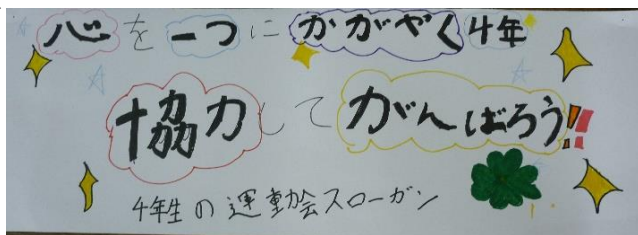 心を一つにかがやく4年
協力してがんばろう!!
4年生の運動会スローガン